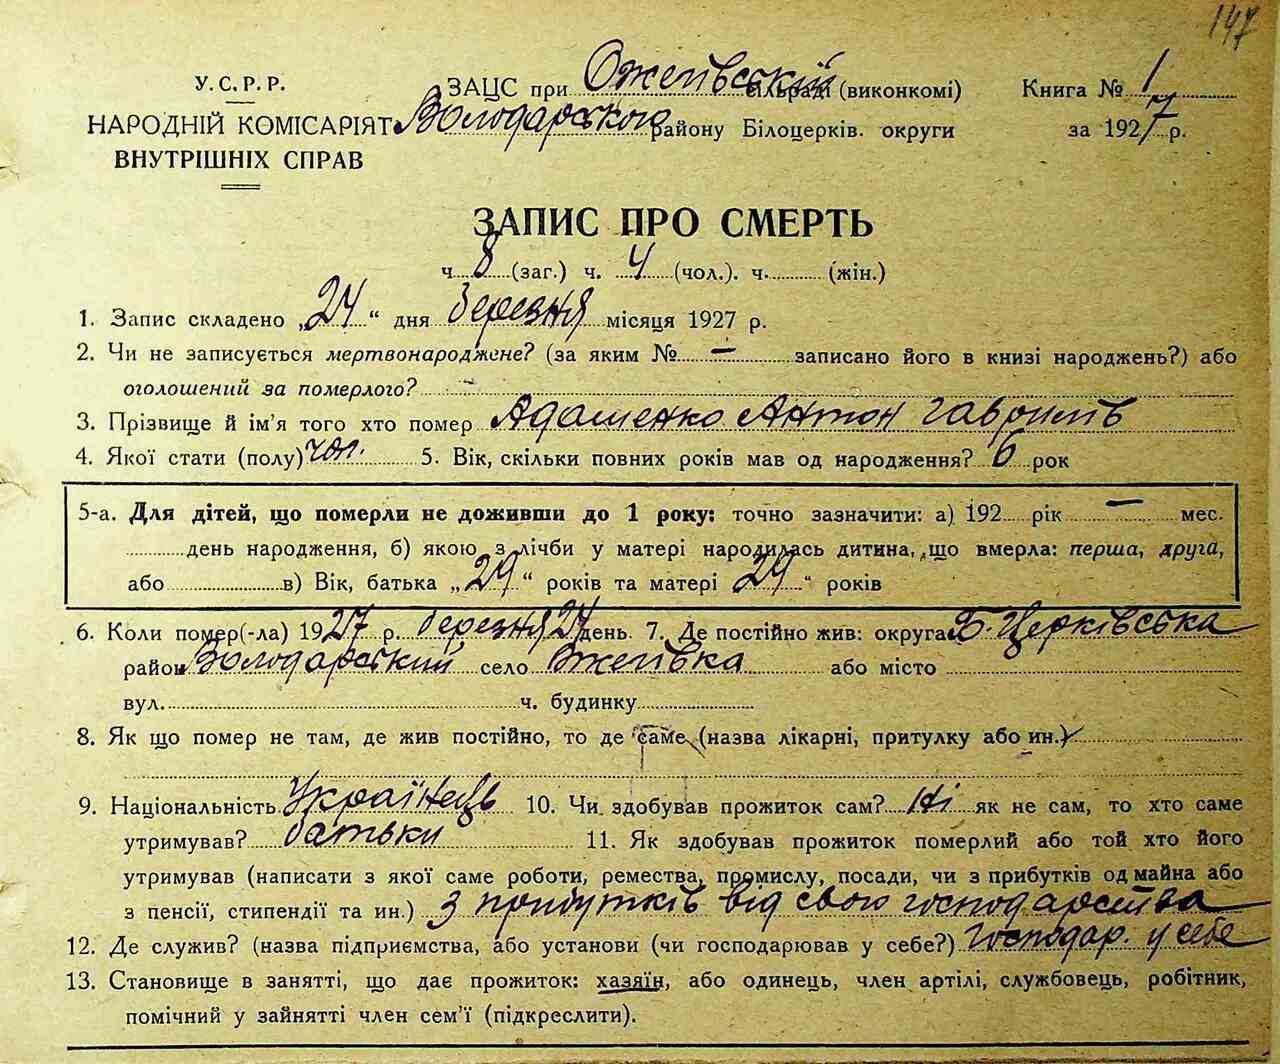 147
У.С.Р.Р.
НАРОДНІЙ КОМІСАРІЯТ
ВНУТРІШНІХ СПРАВ
ЗАЦС при Ожегівській сільраді (виконкомі)
Володарського району Білоцерків. округи
Книга № 1
за 1927 р.
ЗАПИС ПРО СМЕРТЬ
ч. 8 (заг.) ч. 4 (чол.). ч. (жін.)
1. Запис складено „24“ дня березня місяця 1927 р.
2. Чи не записується мертвонароджене? (за яким № — записано його в книзі народжень?) або
оголошений за померлого?
3. Прізвище й ім'я того хто помер Адаменко Антон Гаврилів
4. Якої стати (полу) чол. 5. Вік, скільки повних років мав од народження? 6 рок
5-а. Для дітей, що померли не доживши до 1 року: точно зазначити: а) 192 рік — мес.
день народження, б) якою з лічби у матері народилась дитина, що вмерла: перша, друга,
або в) Вік, батька „29“ років та матері 29“ років
6. Коли помер(-ла) 1927 р. березня 24 день. 7. Де постійно жив: округа Б. Церківська
район Володарський село Ожегівка або місто
вул. ч. будинку
8. Як що помер не там, де жив постійно, то де саме (назва лікарні, притулку або ин.)
9. Національність Українець 10. Чи здобував прожиток сам? Ні як не сам, то хто саме
утримував? батьки 11. Як здобував прожиток померлий або той хто його
утримував (написати з якої саме роботи, ремества, промислу, посади, чи з прибутків од майна або
з пенсії, стипендії та ин.) З прибутків від свого господарства
12. Де служив? (назва підприємства, або установи (чи господарював у себе?) Господар. у себе
13. Становище в занятті, що дає прожиток: хазяїн, або одинець, член артілі, службовець, робітник,
помічний у зайнятті член сем'ї (підкреслити).